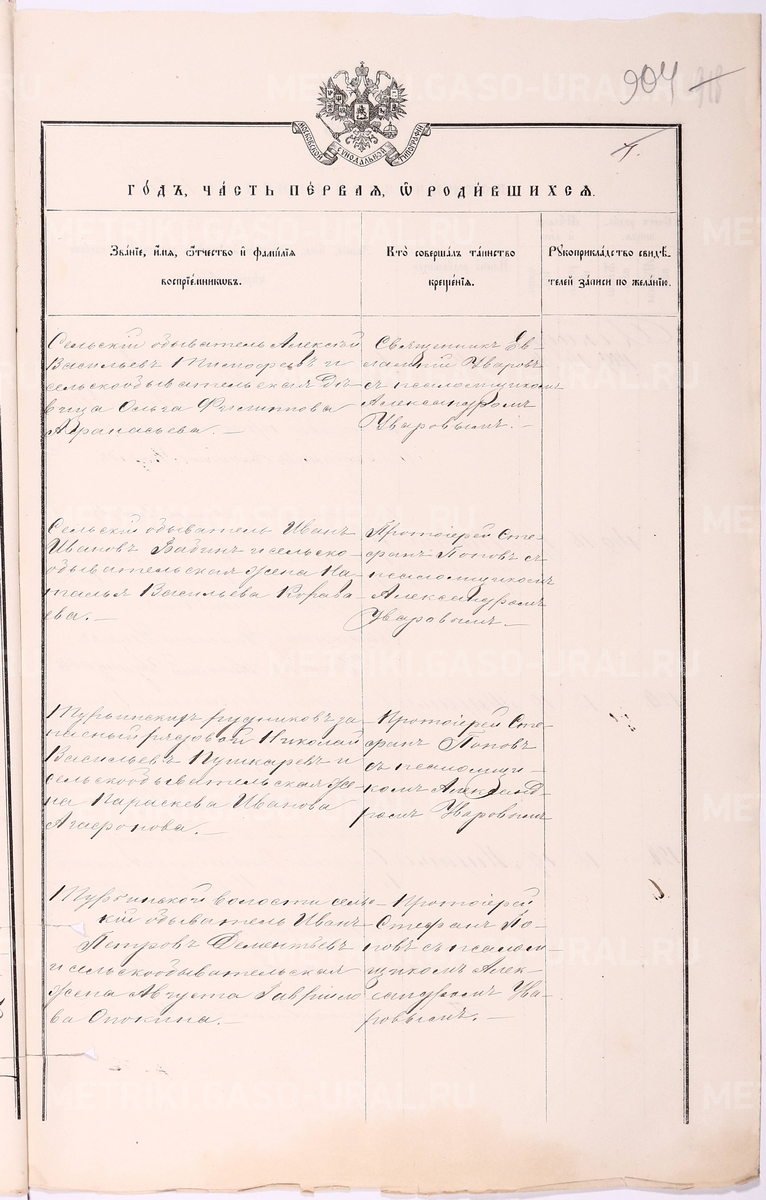 904
МОСКОВСКОЙ СѴНОДАЛЬНОЙ ТИПОГРАФІИ
ГО́ДЪ, ЧА́СТЬ ПЕ́РВАЯ, Ѽ РОДИ́ВШИХСЯ.
Зва́нїе, и́мѧ, ѻ҆́тчество и҆ фами́лїѧ
воспрїе́мникѡвъ.
Кто̀ соверша́лъ та́инство
креще́нїѧ.
Рꙋкоприкла́дство свидѣ́-
телей за́писи по жела́нїю.
Сельскій обыватель Алексѣй
Васильевъ Тимофеевъ и
сельскообывательская дѣ-
вица Ольга Филиппова
Афанасьева. —
Священникъ Ев-
лампій Уваровъ
съ псаломщикомъ
Александромъ
Уваровымъ. —
Сельскій обыватель Иванъ
Ивановъ Бабинъ и сельско-
обывательская жена На-
талья Васильева Корава-
ева. —
Протоіерей Сте-
фанъ Поповъ съ
псаломщикомъ
Александромъ
Уваровымъ. —
Турьинскихъ рудниковъ за-
пасный рядовой Николай
Васильевъ Пушкаревъ и
сельскообывательская же-
на Параскева Иванова
Агафонова. —
Протоіерей Сте-
фанъ Поповъ
съ псаломщи-
комъ Александ-
ромъ Уваровымъ
Турьинской волости сельс-
кій обыватель Иванъ
Петровъ Дементьевъ
и сельскообывательская
жена Августа Гаврiило-
ва Опокина. —
Протоіерей
Стефанъ По-
повъ съ псалом-
щикомъ Алек-
сандромъ Ува-
ровымъ. —
METRIKI.GASO-URAL.RU